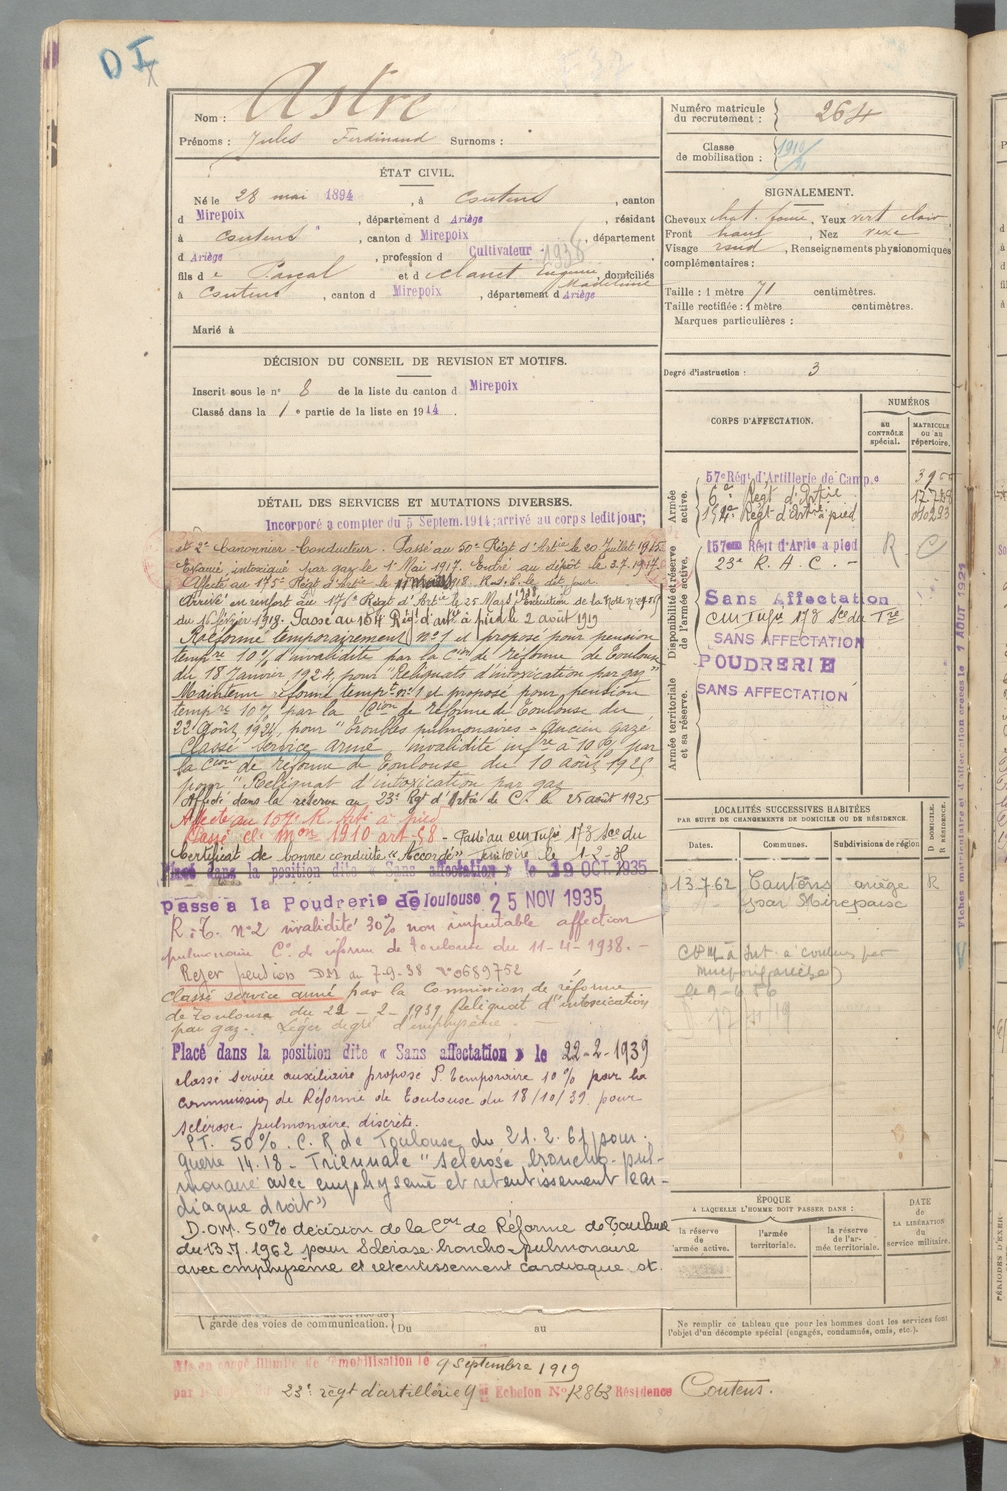 D I
Nom : Astre
Prénoms : Jules Ferdinand Surnoms :
ÉTAT CIVIL.
Né le 28 mai 1894, à Coutens, canton
d Mirepoix, département d Ariège, résidant
à Coutens, canton d Mirepoix, département
d Ariège, profession d Cultivateur 1938
fils d e Pascal et d Clanet Eugénie Madeleine, domiciliés
à Coutens, canton d Mirepoix, département d Ariège
Marié à
DÉCISION DU CONSEIL DE REVISION ET MOTIFS.
Inscrit sous le n° 8 de la liste du canton d Mirepoix
Classé dans la 1e partie de la liste en 1914.
DÉTAIL DES SERVICES ET MUTATIONS DIVERSES.
Incorporé à compter du 5 Septem. 1914; arrivé au corps ledit jour;
et 2e Canonnier-Conducteur. Passé au 50e Régt d'Artie le 20 Juillet 1915
Evacué, intoxiqué par gaz le 1er Mai 1917. Entré au dépôt le 3.7.1917.
Affecté au 175e Régt d'Artie le 1918. le dit jour.
Arrivé en renfort au 176e Régt d'Artie le 25 Mars 1918. Exécution de la Note n°
du 16 février 1918. Passé au 154 Régt d'artie à pied le 2 août 1919
Réformé temporairement n° 1 et proposé pour pension
tempre 10% d'invalidité par la Cion de réforme de Toulouse
du 18 Janvier 1924, pour "Reliquats d'intoxication par gaz
Maintenu réformé tempre n° 1 et proposé pour pension
tempre 10% par la Cion de réforme de Toulouse du
22 Août 1924, pour "Troubles pulmonaires - Ancien gazé
Classé service armé invalidité infre à 10% par
la Cion de réforme de Toulouse du 10 août 1925
pour "Reliquat d'intoxication par gaz
Affecté dans la réserve au 23e Rgt d'Artie de C. le 25 août 1925
Affecté au 157e R. à pied
Passé cl. mon 1910 art 58 - Passé au 173 Son du
Certificat de bonne conduite "Accordé" Territoire le 1-2-
Placé dans la position dite « Sans affectation » le 19 OCT. 1935
passé à la Poudrerie de Toulouse 25 NOV 1935
R. T. n° 2 invalidité 30% non imputable affection
pulmonaire Con de réforme de Toulouse du 11-4-1938. -
Rejet pension DM au 7-9-38 n° 0689752
Classé service armé par la Commission de réforme
de Toulouse du 22-2-1939 Reliquat d'intoxication
par gaz. Léger degré d'emphysème.
Placé dans la position dite « Sans affectation » le 22-2-1939
classé service auxiliaire proposé P. temporaire 10% par la
commission de Réforme de Toulouse du 18/10/39 pour
sclérose pulmonaire discrète.
PT. 50% C. R de Toulouse du 21.2.61 pour
guerre 14.18 - Triennale "sclérose broncho-pul-
monaire avec emphysème et retentissement car-
diaque droit"
D.OM. 50% décision de la Con de Réforme de Toulouse
du 13.7.1962 pour Sclérose broncho-pulmonaire
avec emphysème et retentissement cardiaque dt.
garde des voies de communication. Du au
Mis en congé illimité de démobilisation le 9 Septembre 1919
par le dépôt du 23e régt d'artillerie 9e Echelon N° 12863 Résidence Coutens.
Numéro matricule du recrutement : 264
Classe de mobilisation : 1910
SIGNALEMENT.
Cheveux chat. foncé, Yeux vert clair
Front haut, Nez vexe
Visage rond, Renseignements physionomiques
complémentaires :
Taille : 1 mètre 71 centimètres.
Taille rectifiée : 1 mètre centimètres.
Marques particulières :
Degré d'instruction : 3
CORPS D'AFFECTATION.
NUMÉROS
au contrôle spécial.
MATRICULE ou au répertoire.
Armée active.
57e Régt d'Artillerie de Camp.e
6e Régt d'Artie
154e Régt d'Artie à pied
Disponibilité et réserve de l'armée active.
157ème Régt d'Artie à pied R - C
23e R. A. C. -
Sans Affectation
SANS AFFECTATION
Armée territoriale et sa réserve.
POUDRERIE
SANS AFFECTATION
LOCALITÉS SUCCESSIVES HABITÉES
PAR SUITE DE CHANGEMENTS DE DOMICILE OU DE RÉSIDENCE.
Dates. Communes. Subdivisions de région D. DOMICILE. R. RÉSIDENCE.
13.7.62 Coutens ariège R
par Mirepoix
ÉPOQUE
A LAQUELLE L'HOMME DOIT PASSER DANS :
la réserve de l'armée active.
l'armée territoriale.
la réserve de l'armée territoriale.
DATE de LA LIBÉRATION du service militaire.
Ne remplir ce tableau que pour les hommes dont les services font
l'objet d'un décompte spécial (engagés, condamnés, omis, etc.).
Fiches matriculaire et d'affectation créées le 1 AOUT 1921
PÉRIODES D'EXER-